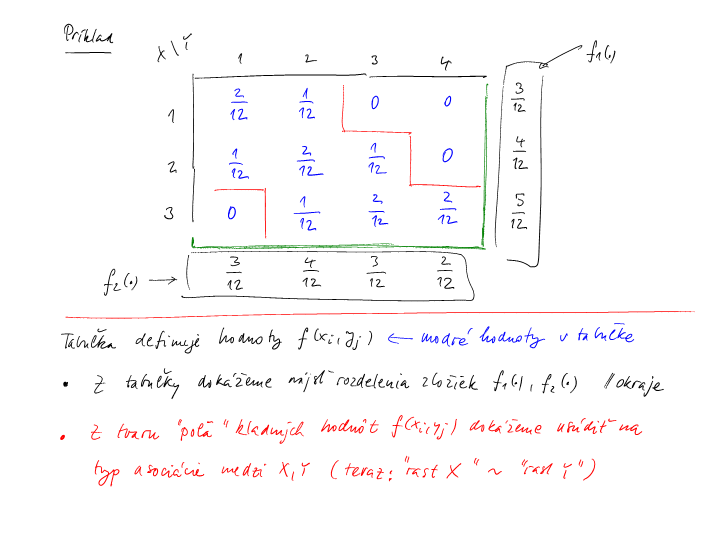 Príklad
X\Y 1 2 3 4 f₁(.)
1 2/12 1/12 0 0 3/12
2 1/12 2/12 1/12 0 4/12
3 0 1/12 2/12 2/12 5/12
f₂(.) → 3/12 4/12 3/12 2/12
Tabuľka definuje hodnoty f(xᵢ,yⱼ) ← modré hodnoty v tabuľke
• Z tabuľky dokážeme nájsť rozdelenia zložiek f₁(.), f₂(.) // okraje
• Z tvaru "poľa" kladných hodnôt f(xᵢ,yⱼ) dokážeme usúdiť na
typ asociácie medzi X,Y (teraz: "rast X" ~ "rast Y")